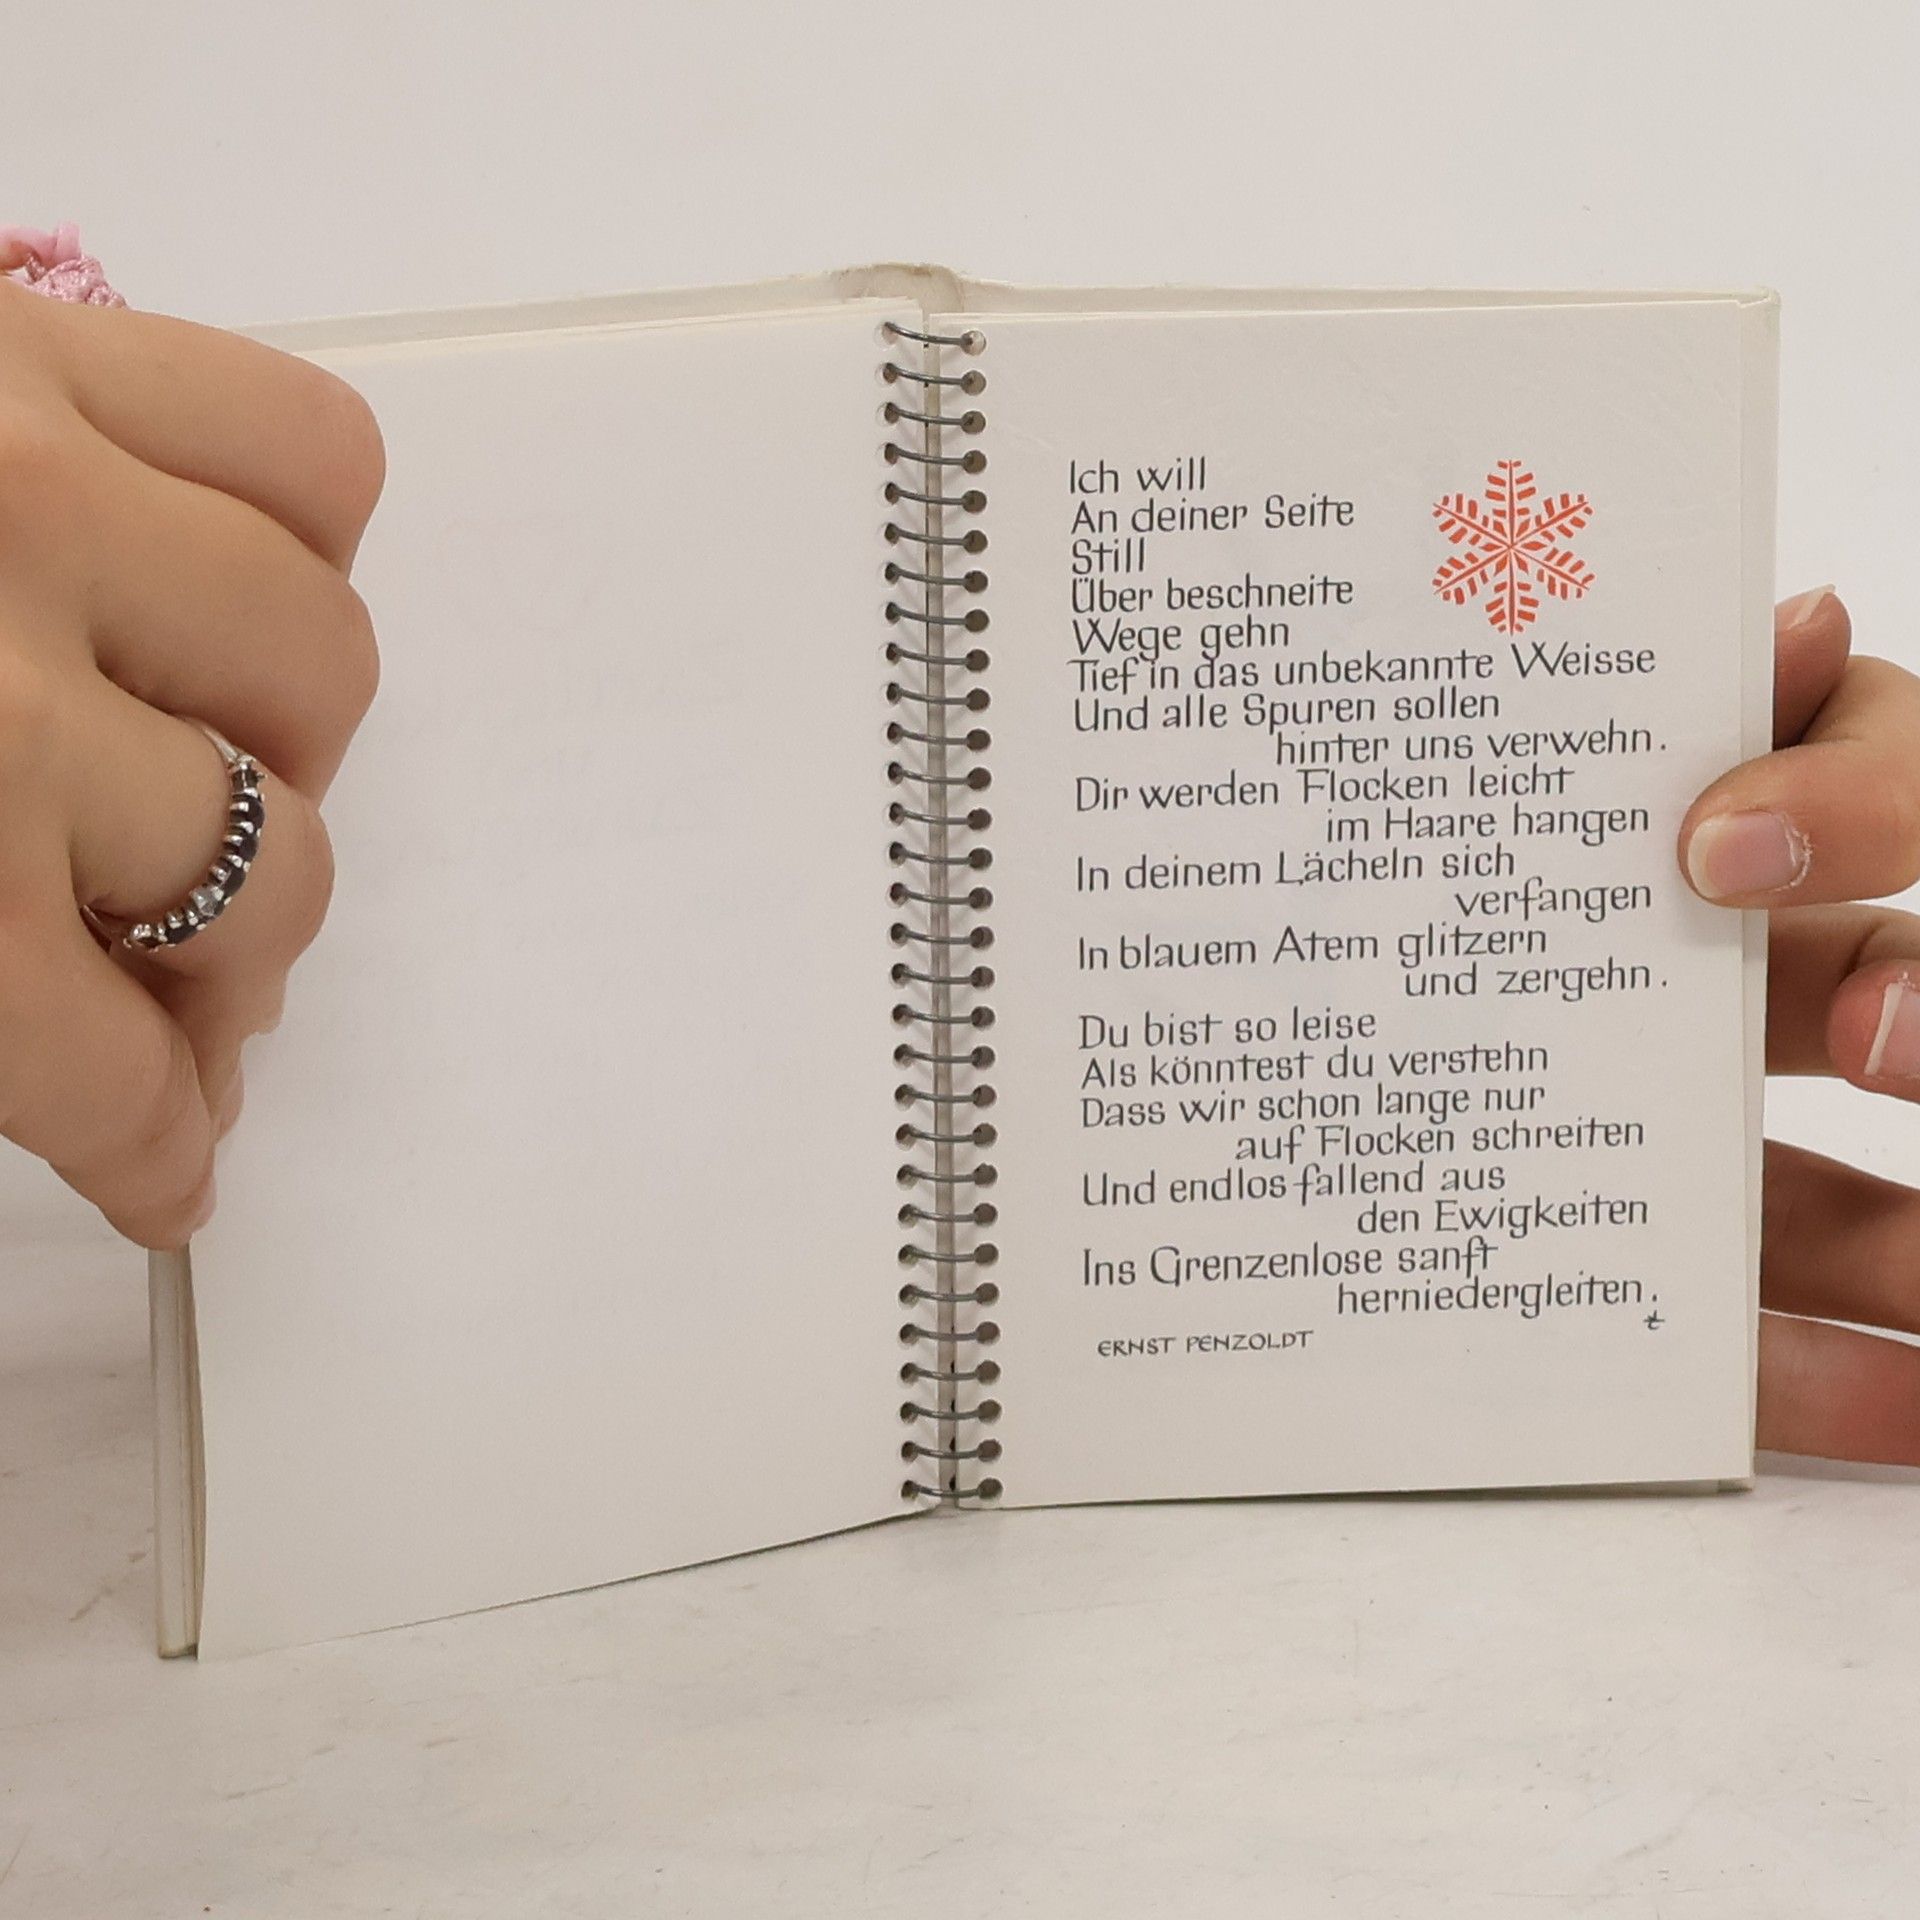 Ich will
An deiner Seite
Still
Über beschneite
Wege gehn
Tief in das unbekannte Weisse
Und alle Spuren sollen
hinter uns verwehn.
Dir werden Flocken leicht
im Haare hangen
In deinem Lächeln sich
verfangen
In blauem Atem glitzern
und zergehn.
Du bist so leise
Als könntest du verstehn
Dass wir schon lange nur
auf Flocken schreiten
Und endlos fallend aus
den Ewigkeiten
Ins Grenzenlose sanft
herniedergleiten.
t
ERNST PENZOLDT